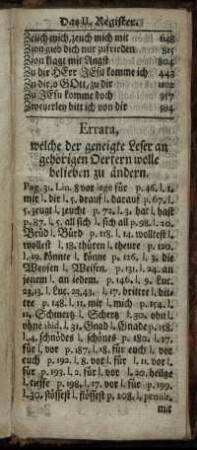 Das II. Register.
Zeuch mich, zeuch mich mit 648
Zion gieb dich nur zufrieden 815
Zion klagt mit Angst 804
Zu dir HErr JEsu komme ich 443
Zu dir, o GOtt, zu dir
Zu JEsu komme doch 357
Zweyerley bitt ich von dir 584
Errata,
welche der geneigte Leser an
gehörigen Oertern wolle
belieben zu ändern.
Pag. 31. Lin. 8 vor iege für p. 46. l. 1.
mit l. die l. 5. drauf l. darauf p. 67. l.
5. zeugt l. zeucht p. 72. l. 3. hat l. hast
p. 87. l. 5. all sich l. sich all p. 98. l. 20.
Brüd l. Bürd p. 118. l. 14. wolltest l.
wollest l. 18. thüren l. theure p. 120.
l. 19. könnte l. könne p. 126. l. 3. die
Weysen l. Weisen. p. 131. l. 24. an
jenem l. an jedem. p. 146. l. 9. Luc.
23,13. l. Luc. 23,43. l. 17. drittel l. dit
te p. 148. l. 11. mit l. mich p. 154. l.
11. Schmertz l. Schertz l. 30. ohn l.
ohne ibid. l. 31. Gnad l. Gnade p. 158.
l. 4. schnödes l. schönes p. 180. l. 17.
für l. vor p. 187. l. 18. für euch l. vor
euch p. 192. l. 8. vor l. für l. 11. vor l.
für p. 193. l. 2. für l. vor l. 20. heilge
l. tieffe p. 198. l. 17. vor l. für p. 199.
l. 30. stössest l. flössest p. 208. l. penuls.
mit